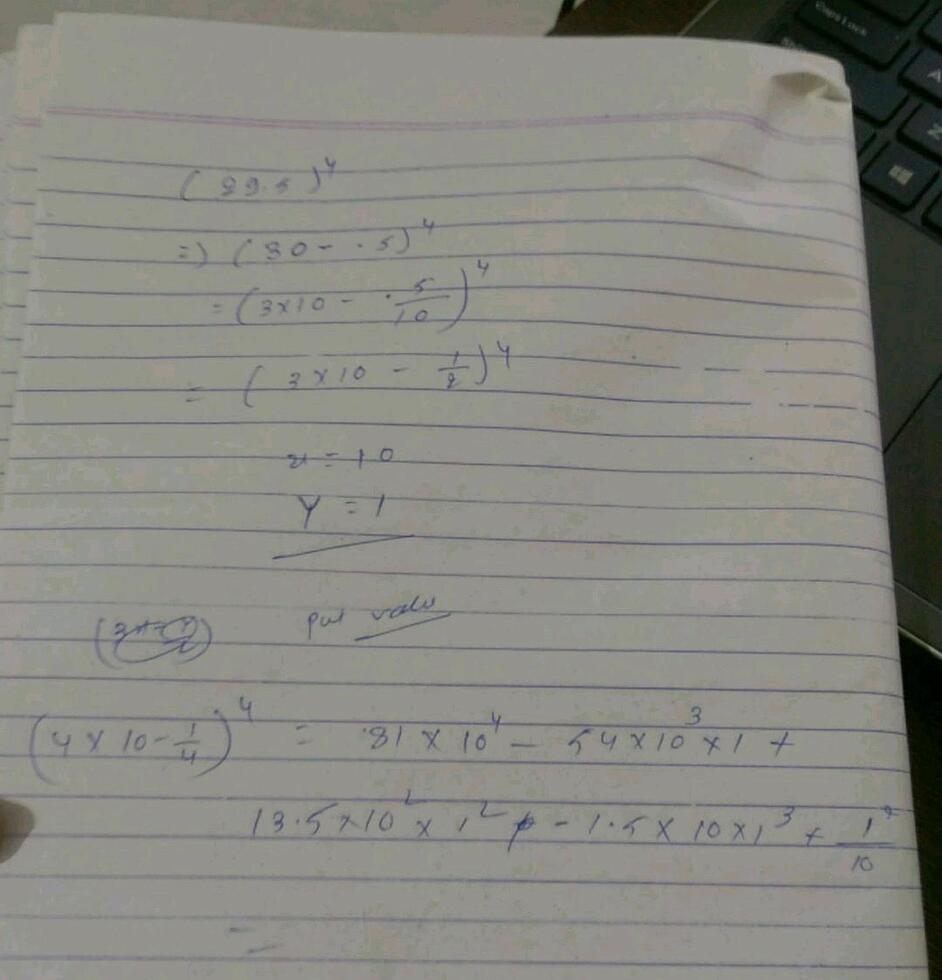 Caps Lock
A
Z
(29.5)^4
=) (30 - .5)^4
= (3×10 - .5/10)^4
= (3×10 - 1/2)^4
x = 10
Y = 1
put valu
(4×10 - 1/4)^4 = 81×10^4 - 54×10^3×1 +
13.5×10^2×1^2 - 1.5×10×1^3 + 1/10
=